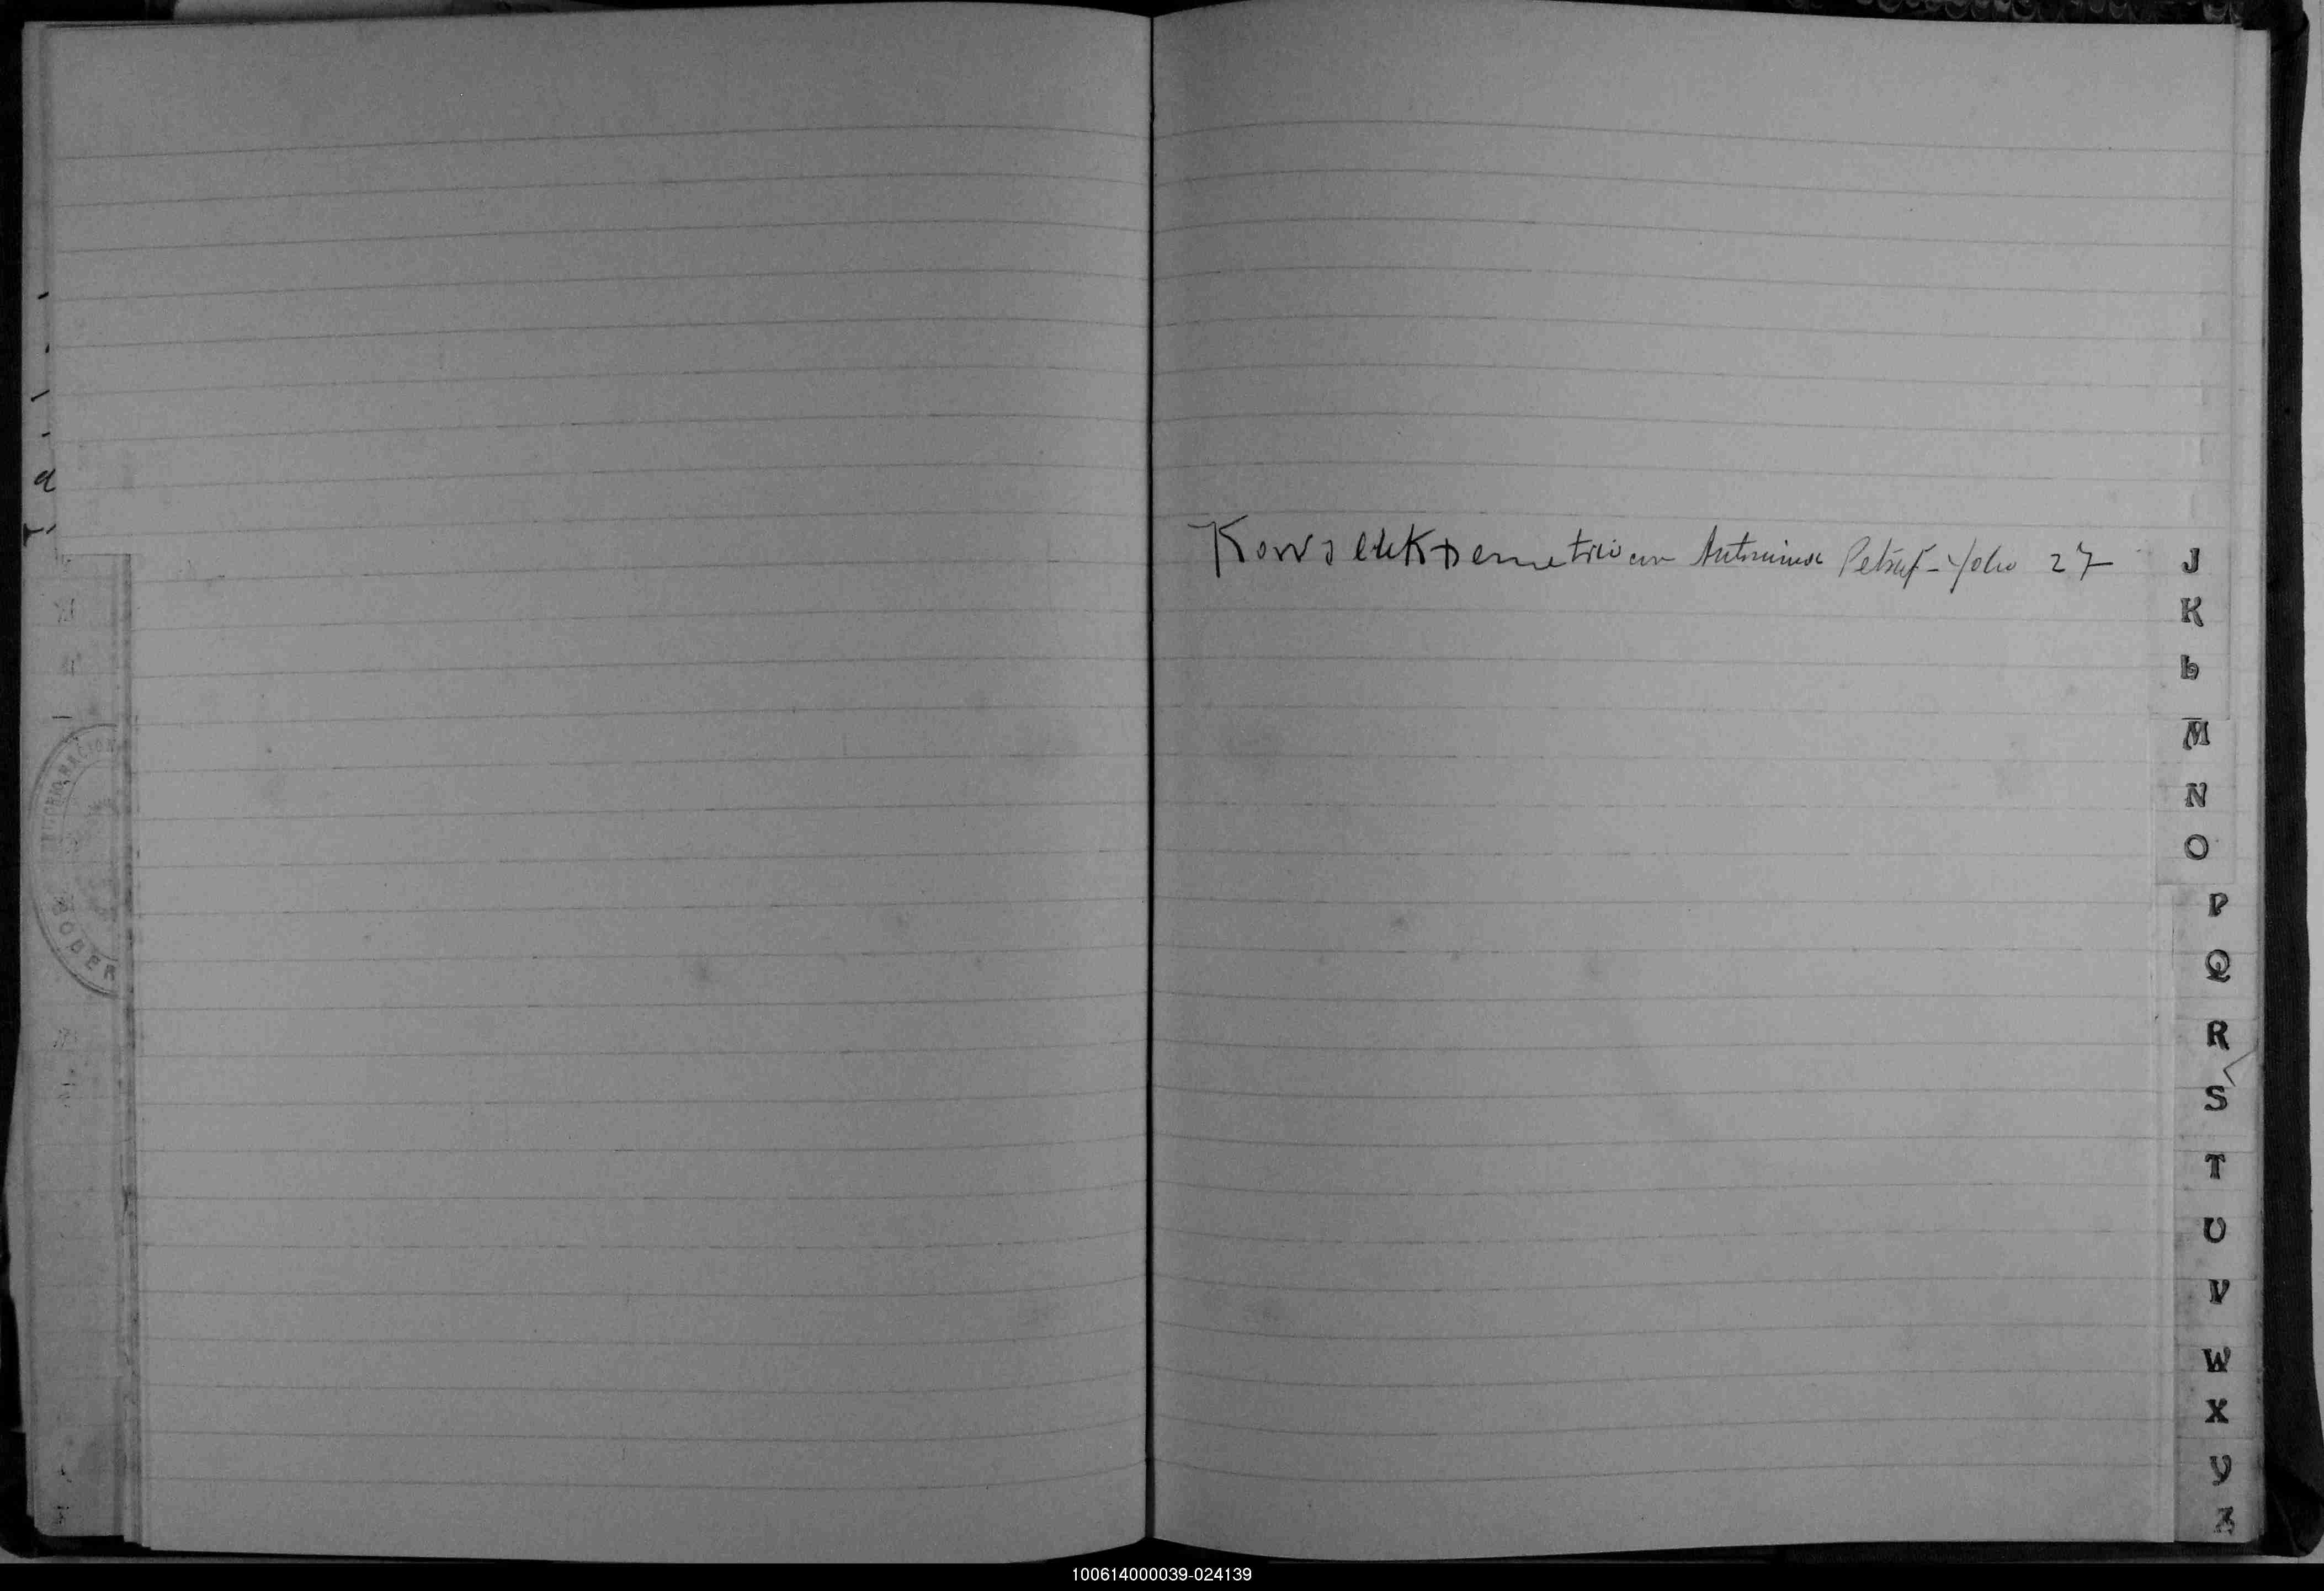 KowalchuK Demetrio con Antonina Petruf - folio 27
J
K
L
M
N
O
P
Q
R
S
T
U
V
W
X
Y
Z
100614000039-024139